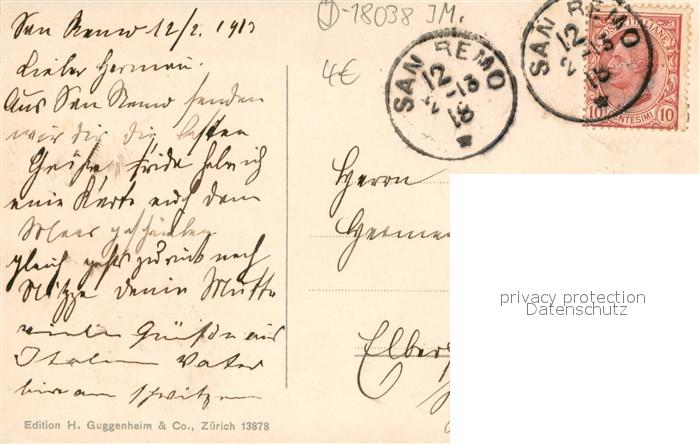 San Remo 12/2. 1913
Lieber Herman.
Aus San Remo senden
wir dir die besten
Grüße, Frida habe ich
eine Karte auf dem
Meer geschrieben
gleich gehts zurück nach
Nizza deine Mutter
viele Grüße aus
Italien Vater
bin am schwitzen
Edition H. Guggenheim & Co., Zürich 13878
J-18038 JM.
4€
SAN REMO
12
2-13
18
SAN REMO
12
2-13
18
POSTE ITALIANE
10 CENTESIMI 10
Herrn
Elbers
privacy protection
Datenschutz